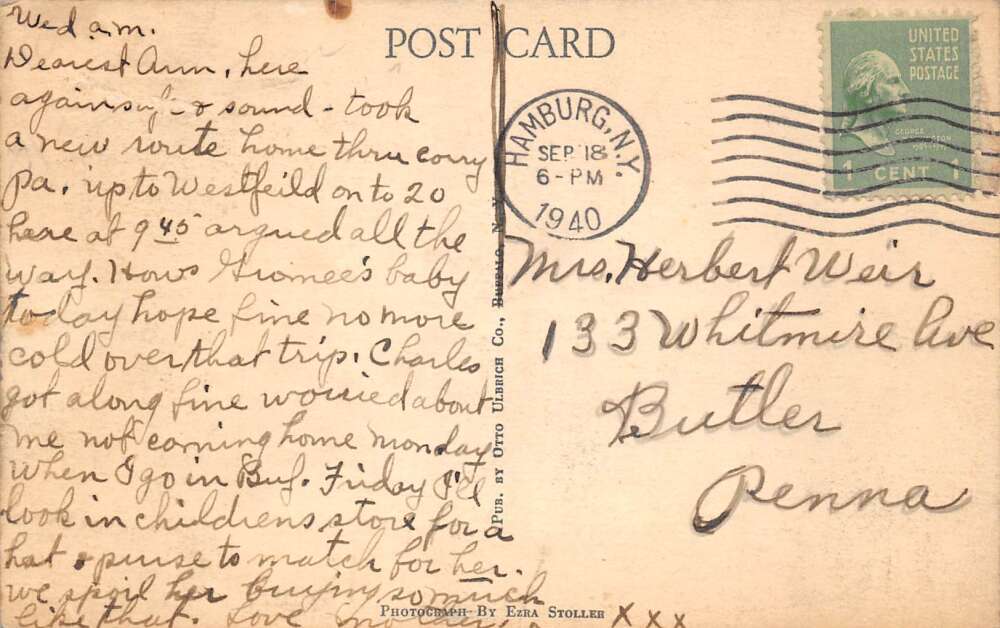 Wed a.m.
Dearest Ann, here
again safe & sound - took
a new route home thru corry
Pa. up to Westfeild on to 20
here at 9 45 argued all the
way. Hows Gromee's baby
today hope fine no more
cold over that trip. Charles
got along fine worried about
me not coming home Monday
When I go in Buf. Friday I'll
look in childrens store for a
hat & purse to match for her.
we spoil her buying so much
like that. Love Mother.
XXX
POST CARD
UNITED
STATES
POSTAGE
GEORGE
1 CENT 1
HAMBURG, N.Y.
SEP 18
6-PM
1940
Mrs. Herbert Weir
133 Whitmire Ave
Butler
Penna
PUB. BY OTTO ULBRICH CO., BUFFALO, N.Y.
PHOTOGRAPH BY EZRA STOLLER